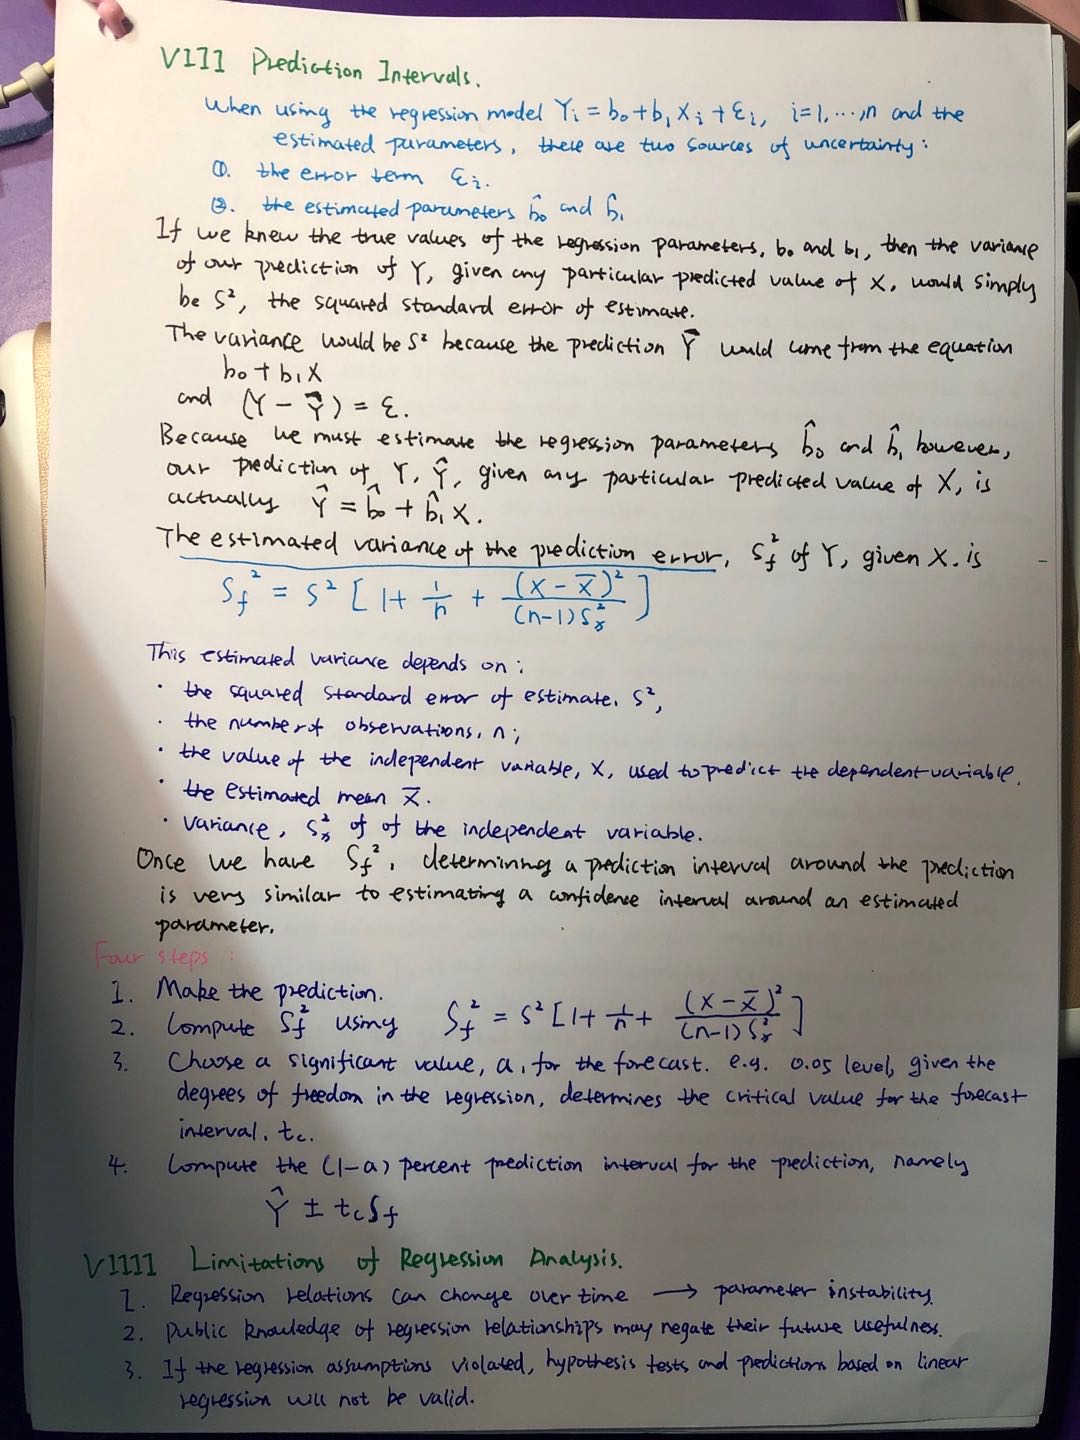 VIII Prediction Intervals.
When using the regression model Yi = b₀ + b₁ Xi + εi, i=1,⋯,n and the
estimated parameters, there are two sources of uncertainty:
①. the error term εi.
②. the estimated parameters b̂₀ and b̂₁
If we knew the true values of the regression parameters, b₀ and b₁, then the variance
of our prediction of Y, given any particular predicted value of X, would simply
be S², the squared standard error of estimate.
The variance would be S² because the prediction Ŷ would come from the equation
b₀ + b₁X
and (Y - Ŷ) = ε.
Because we must estimate the regression parameters b̂₀ and b̂₁ however,
our prediction of Y, Ŷ, given any particular predicted value of X, is
actually Ŷ = b̂₀ + b̂₁X.
The estimated variance of the prediction error, Sf² of Y, given X. is
Sf² = S² [ 1 + 1/n + (X - X̄)²/(n-1)Sx² ]
This estimated variance depends on:
· the squared standard error of estimate. S²,
· the number of observations, n;
· the value of the independent variable, X, used to predict the dependent variable.
· the estimated mean X̄.
· variance, Sx² of of the independent variable.
Once we have Sf², determining a prediction interval around the prediction
is very similar to estimating a confidence interval around an estimated
parameter.
Four steps:
1. Make the prediction.
2. Compute Sf² using Sf² = S² [ 1 + 1/n + (X - X̄)²/(n-1)Sx² ]
3. Choose a significant value, a, for the forecast. e.g. 0.05 level, given the
degrees of freedom in the regression, determines the critical value for the forecast
interval, tc.
4. Compute the (1-a) percent prediction interval for the prediction, namely
Ŷ ± tcSf
VIIII Limitations of Regression Analysis.
1. Regression relations can change over time → parameter instability.
2. Public knowledge of regression relationships may negate their future usefulness.
3. If the regression assumptions violated, hypothesis tests and predictions based on linear
regression will not be valid.